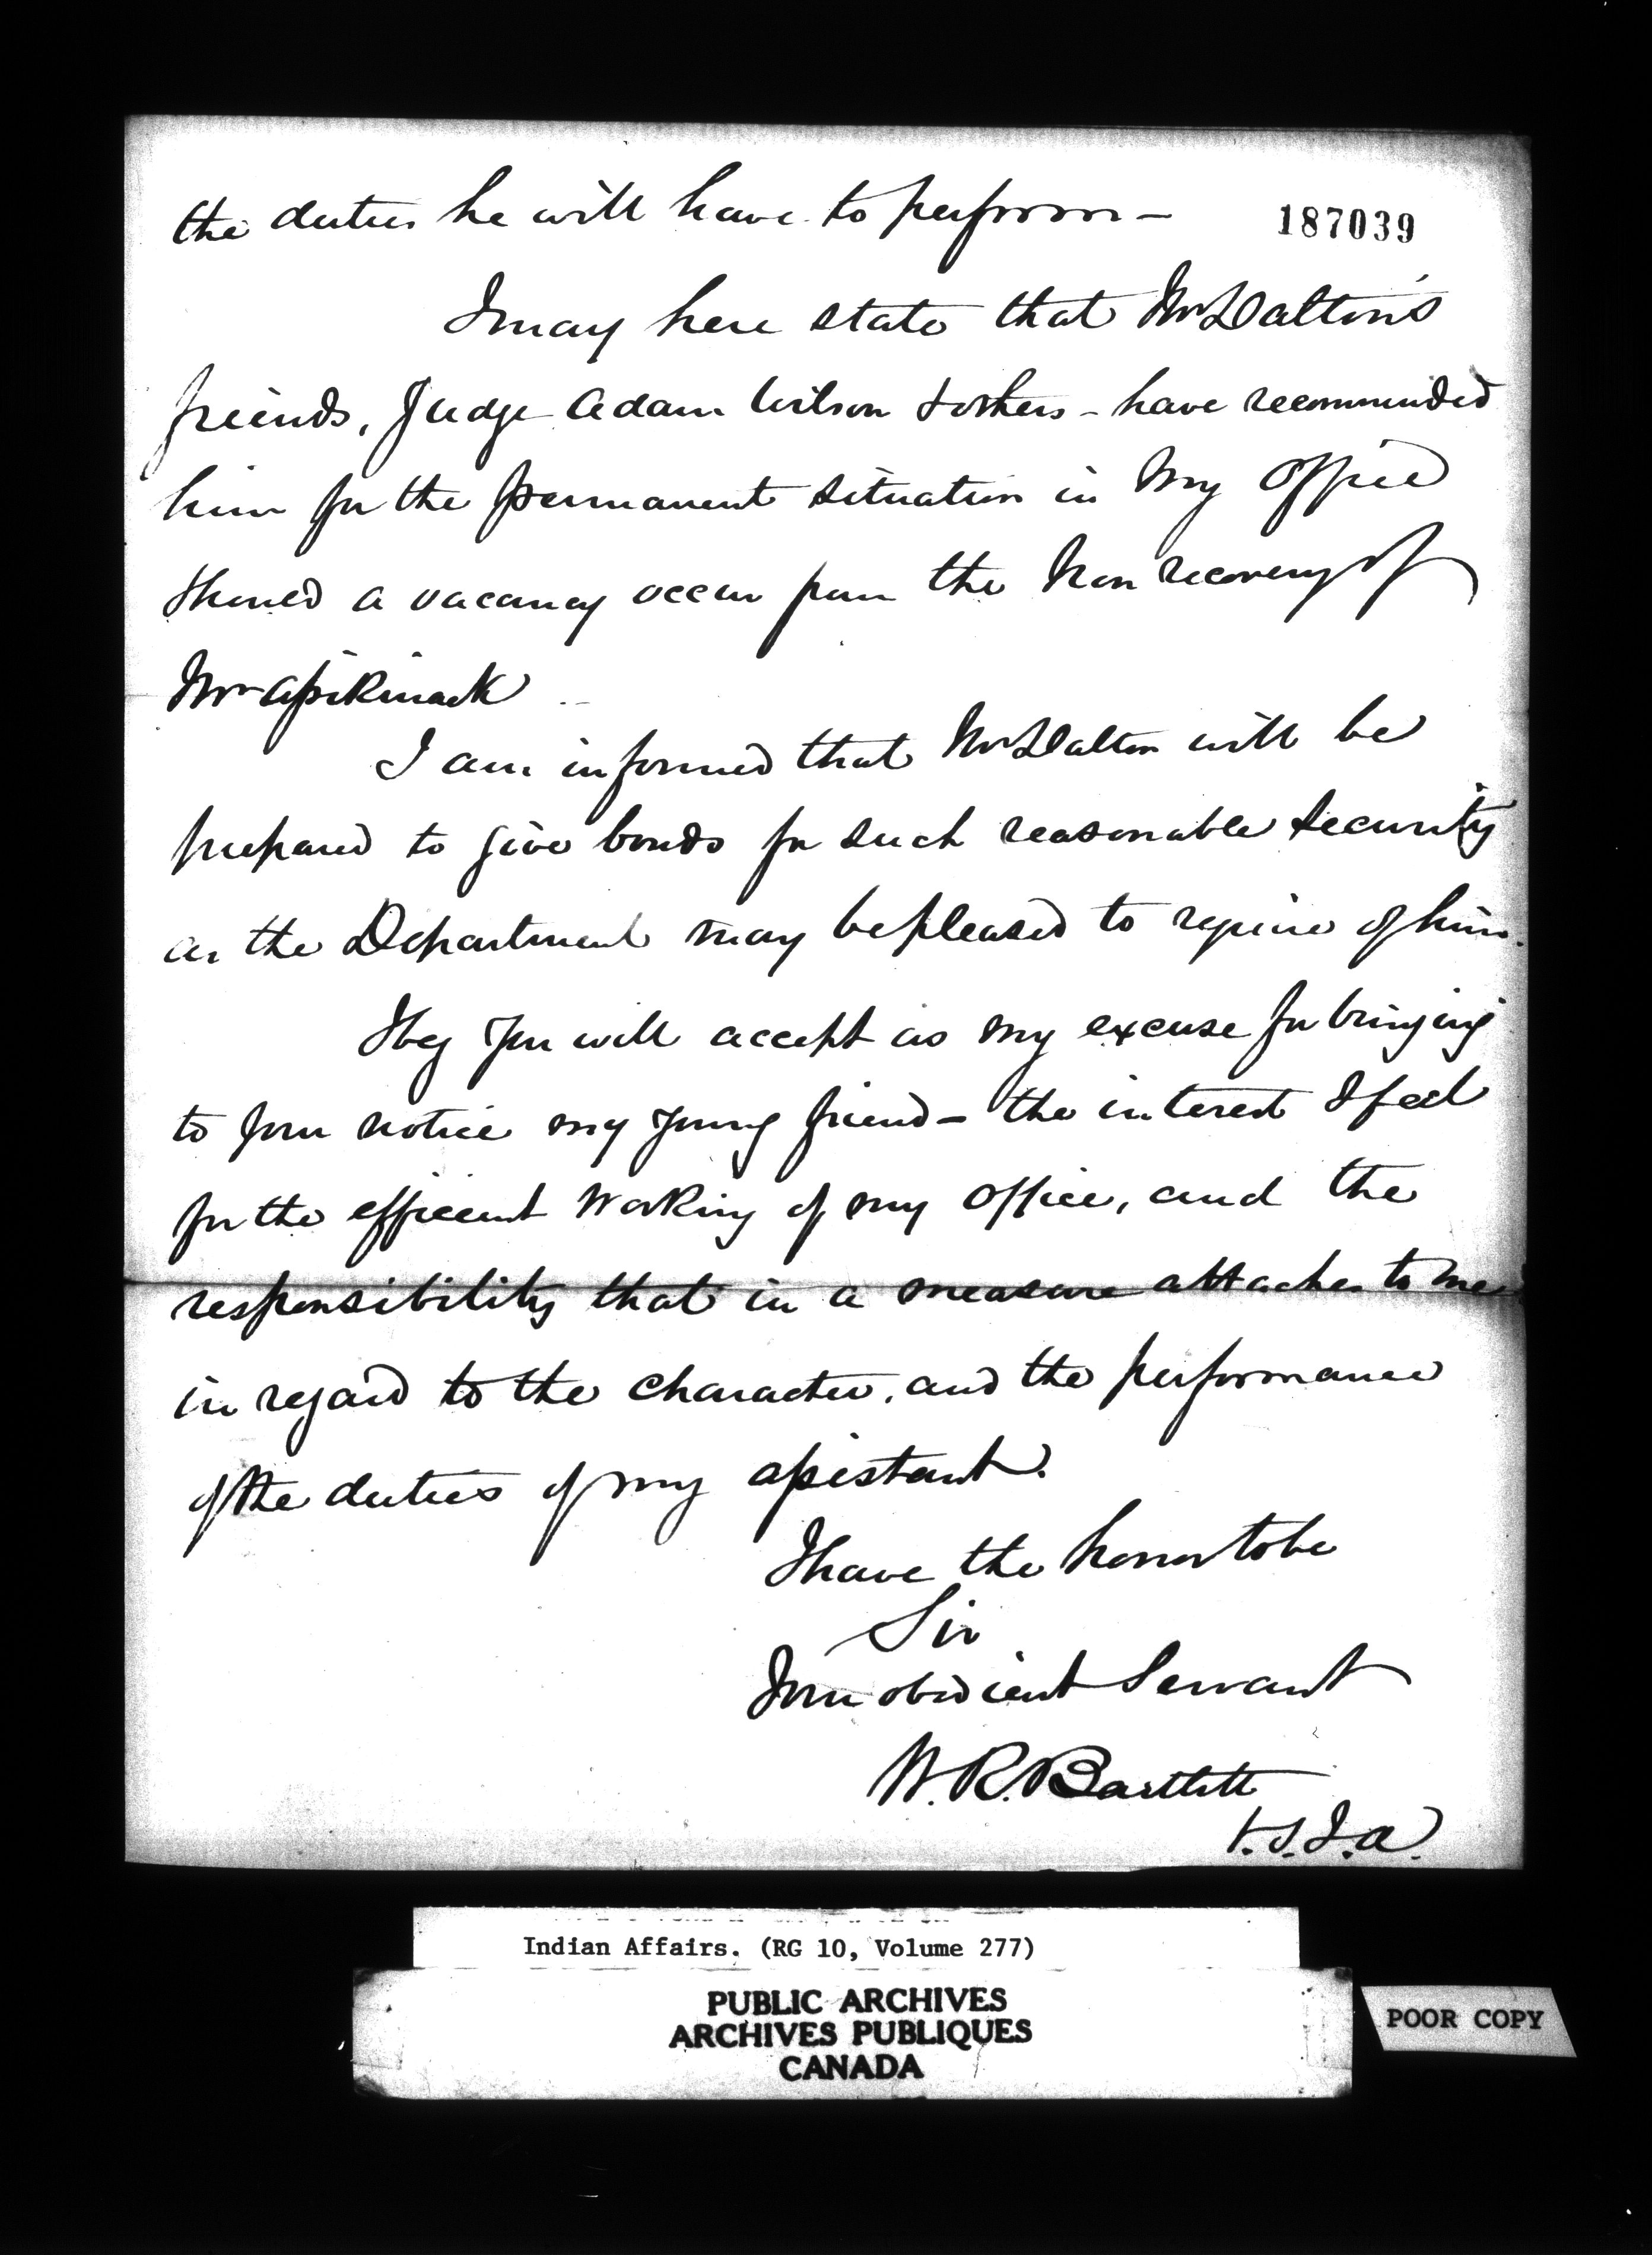 the duties he will have to perform -
187039
I may here state that Mr Dalton's
friends, Judge Adam Wilson & others - have recommended
him for the permanent situation in my office
should a vacancy occur from the non recovery of
Mr Assikinack
I am informed that Mr Dalton will be
prepared to give bonds for such reasonable security
as the Department may be pleased to require of him.
I beg you will accept as my excuse for bringing
to your notice my young friend - the interest I feel
for the efficient working of my office, and the
responsibility that in a measure attaches to me
in regard to the character, and the performance
of the duties of my assistant.
I have the honor to be
Sir
Your obedient Servant
W. R. Bartlett
V.S.I.A.
Indian Affairs. (RG 10, Volume 277)
PUBLIC ARCHIVES
ARCHIVES PUBLIQUES
CANADA
POOR COPY